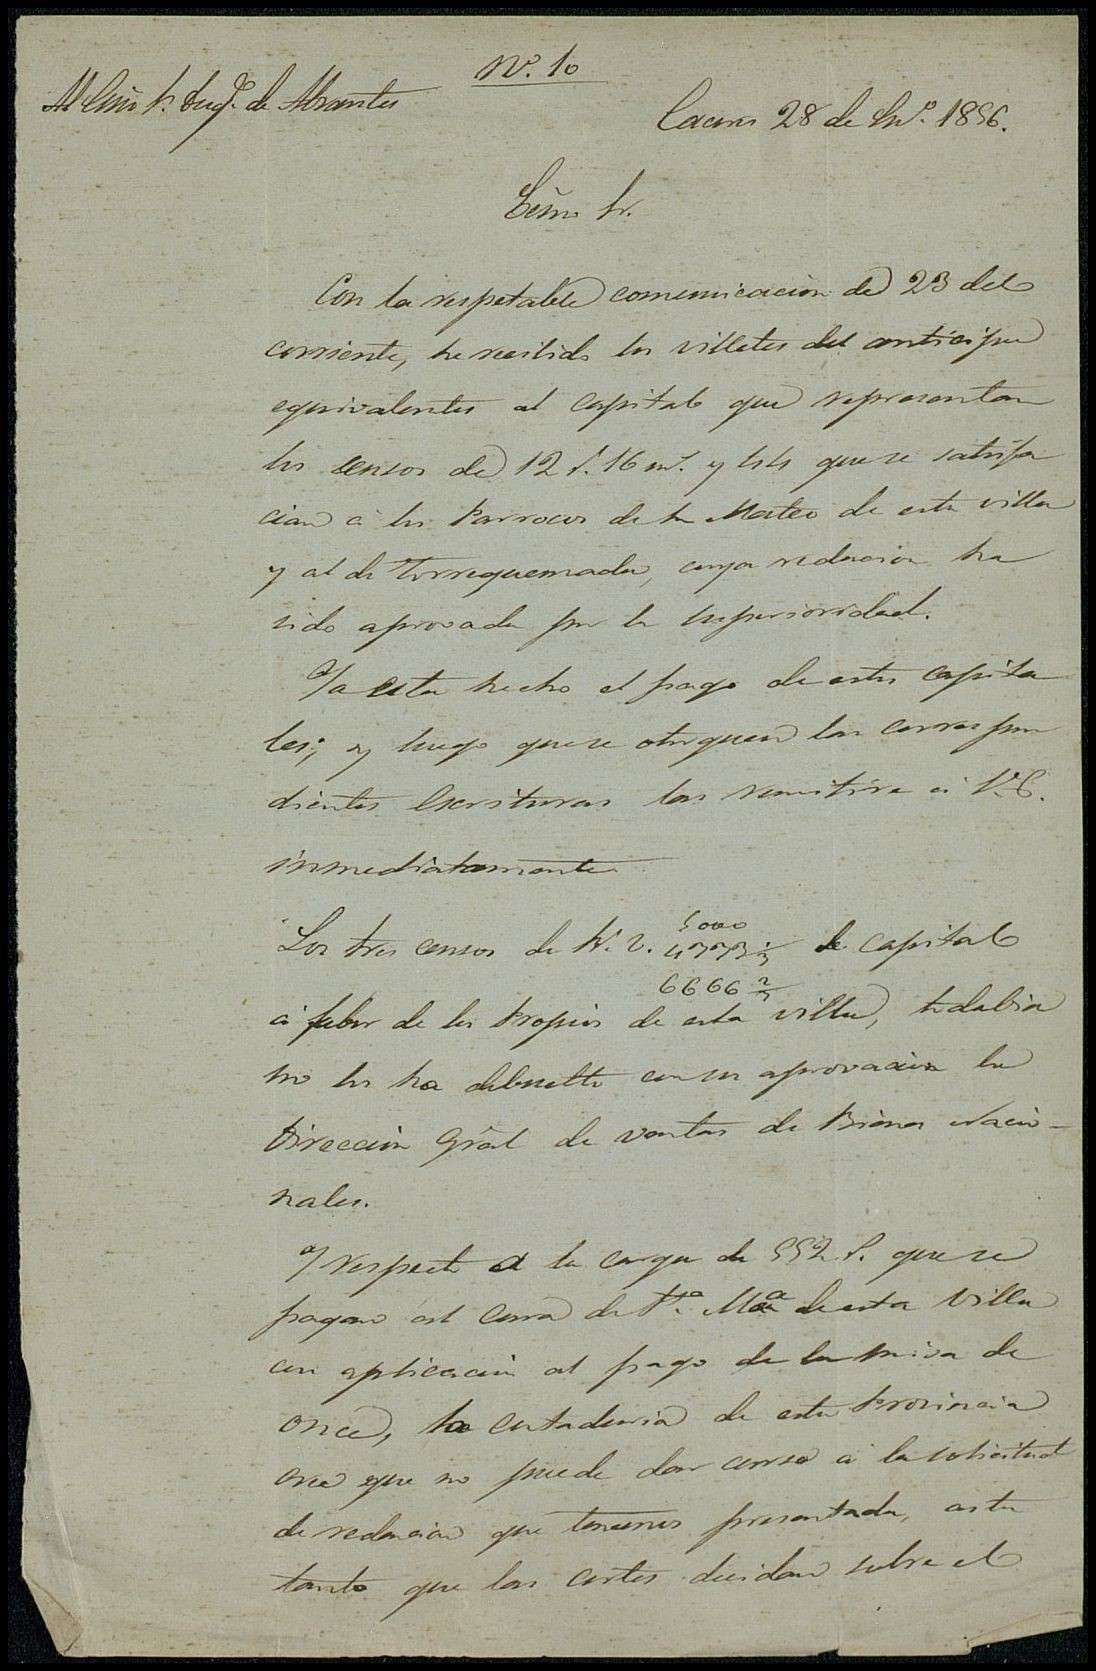 Nº. 10
Al Exmo Sr. Duqe. de Abrantes
Caceres 28 de En.º 1856.
Exmo Sr.
Con la respetable comunicacion de 23 del
corriente, he recibido los villetes del anticipo
equivalentes al capital que representan
los censos de 12 r. 16 ms. y que se satisfa
cian a los Parrocos de Sn Mateo de esta villa
y al de Torrequemada, cuya redencion ha
sido aprovada por la superioridad.
Ya esta hecho el pago de estos capita
les; y luego que se otorguen las correspon
dientes Escrituras las remitire á V.E.
inmediatamente
Los tres censos de Rs. v. 5000 de capital
4773 1/3
6666 2/3
á fabor de los Propios de esta villa, todabia
no los ha debuelto con su aprovacion la
Direccion Gral de ventas de Bienes Nacio-
nales.
Y respecto a la carga de 552 r. que se
pagan al Cura de Sta. Maa de esta Villa
con aplicacion al pago de la misa de
once, la Contaduria de esta Provincia
cree que no puede dar curso á la solicitud
de redencion que tenemos presentada, asta
tanto que las cortes decidan sobre el